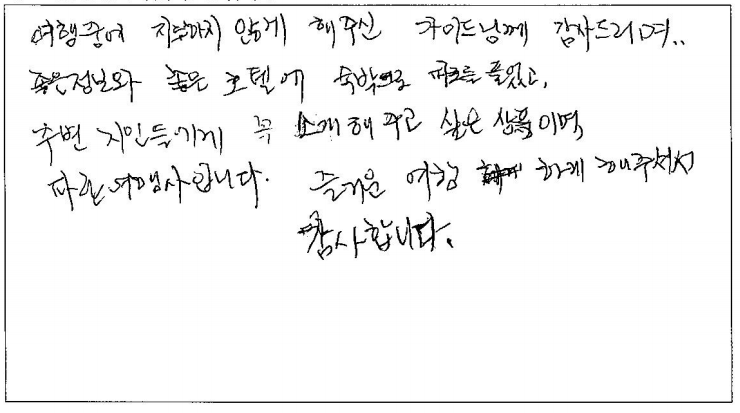 여행중에 지루하지 않게 해주신 가이드님께 감사드리며..
좋은정보와 좋은 호텔에 숙박으로 피로를 풀었고,
주변 지인들에게 꼭 소개해 주고 싶은 상품이며,
여행사입니다. 즐거운 여행 하게 해주셔서
감사합니다.